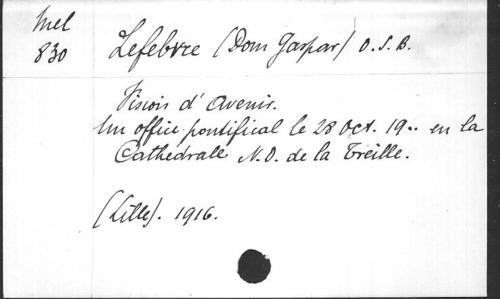 Mel
830
Lefebvre (Dom Gaspar) O.S.B.
Vision d'Avenir.
Un office pontifical le 28 Oct. 19.. en la
Cathédrale N.D. de la Treille.
(Lille). 1916.